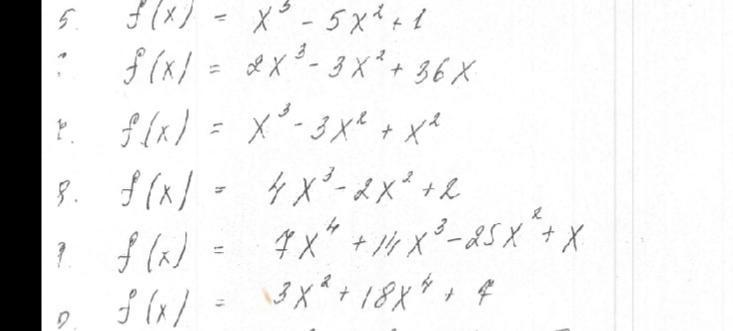 5. f(x) = x³ - 5x² + 1
f(x) = 2x³ - 3x² + 36x
f(x) = x³ - 3x² + x²
8. f(x) = 4x³ - 2x² + 2
f(x) = 7x⁴ + 14x³ - 25x² + x
f(x) = 3x² + 18x⁴ + 7